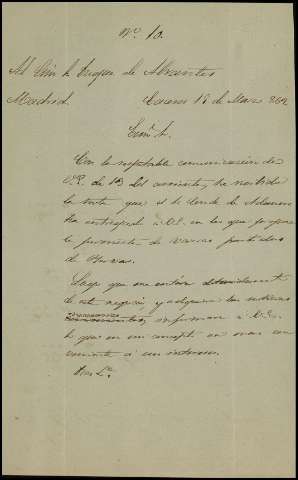 Nº 10.
Al Sor Duque de Abrantes
Madrid. Caceres 15 de Marzo 1862
Exmo Sr.
Con la respetable comunicacion de
V.E. de 13 del corriente, he recibido
la nota que el Sr Conde de
ha entregado á V.E. en la que propone
la permuta de varias partidas
de Yervas.
Luego que me entere detenidamente
de este negocio y adquiera las noticias
necesarias, informaré á V.E.
lo que en mi concepto sea mas con
veniente á sus intereses.